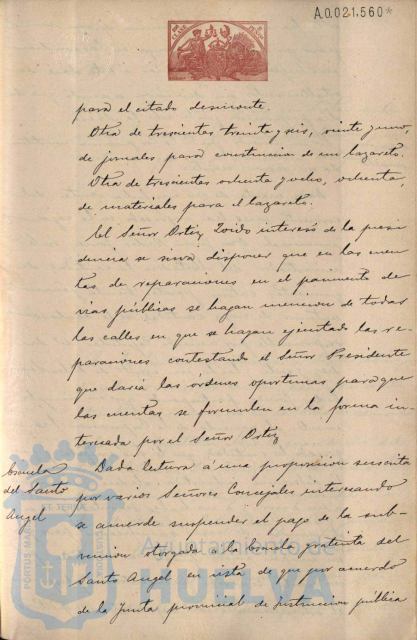 A.0.021.560*
para el citado desmonte.
Otra de trescientas treinta y seis, veinte y uno,
de jornales para construccion de un lazareto.
Otra de trescientas ochenta y ocho, ochenta,
de materiales para el lazareto.
El Señor Ortiz Zoido interesó de la presi
dencia se sirva disponer que en las cuen
tas de reparaciones en el pavimento de
vias públicas se hagan mencion de todas
las calles en que se hayan ejecutado las re
paraciones contestando el Señor Presidente
que daria las órdenes oportunas para que
las cuentas se formulen en la forma in
teresada por el Señor Ortiz
Escuela
del Santo
Angel
Dada lectura á una proposicion suscrita
por varios Señores Concejales interesando
se acuerde suspender el pago de la sub-
vencion otorgada a la Escuela gratuita del
Santo Angel en vista de que por acuerdo
de la Junta provincial de Instruccion pública
Ayuntamiento de
HUELVA